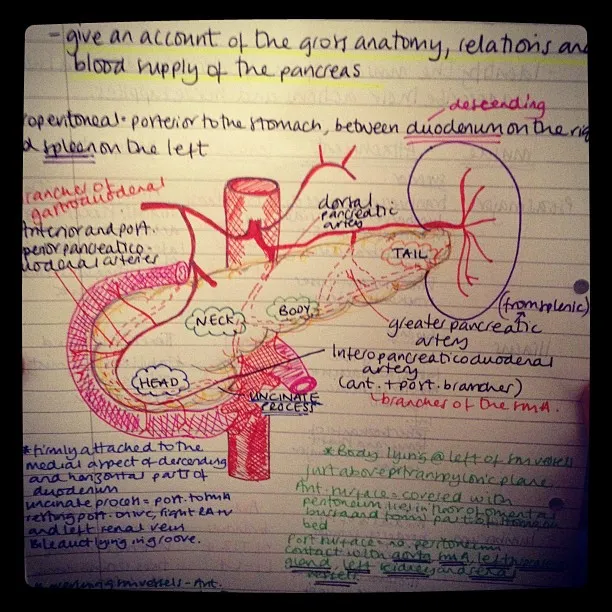 - give an account of the gross anatomy, relations and
blood supply of the pancreas
descending
roperitoneal - posterior to the stomach, between duodenum on the rig
d spleen on the left
ranches of
gastroduodenal
Anterior and post.
perior pancreatico-
uodenal arteries
dorsal
pancreatic
artery
TAIL
BODY
NECK
HEAD
(from splenic)
greater pancreatic
artery
Inferopancreaticoduodenal
artery
(ant. + post. branches)
branches of the SMA.
UNCINATE
PROCESS
* firmly attached to the
medial aspect of descending
and horizontal parts of
duodenum
uncinate process = post. to SMA
resting post. on IVC, right RA + V
and left renal vein
Bile duct lying in groove.
* Body lying @ left of SM vessels
just above transpyloric plane
Ant. surface = covered with
peritoneum lies in floor of omental
bursa and forms part of stomach
bed
Post surface = no peritoneum
contact with aorta SMA, left
gland, left kidney and renal
vessels
SM vessels - Ant.